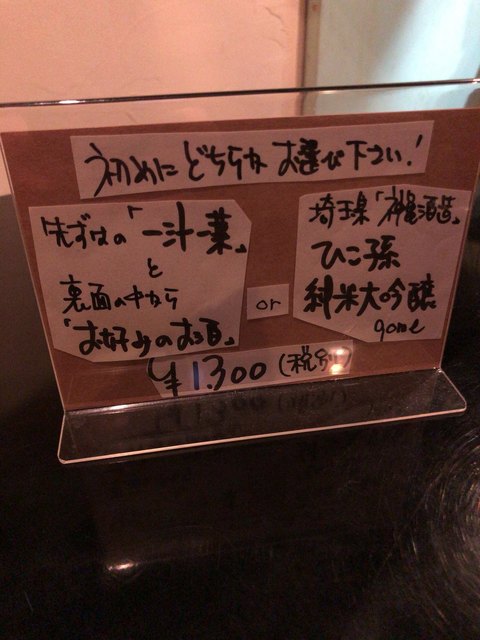 初めにどちらかお選び下さい!
先ずはの「一汁一菜」
と
裏面の中から
「お好みのお酒」
or
埼玉県「神亀酒造」
ひこ孫
純米大吟醸
90ml
¥1.300(税別)